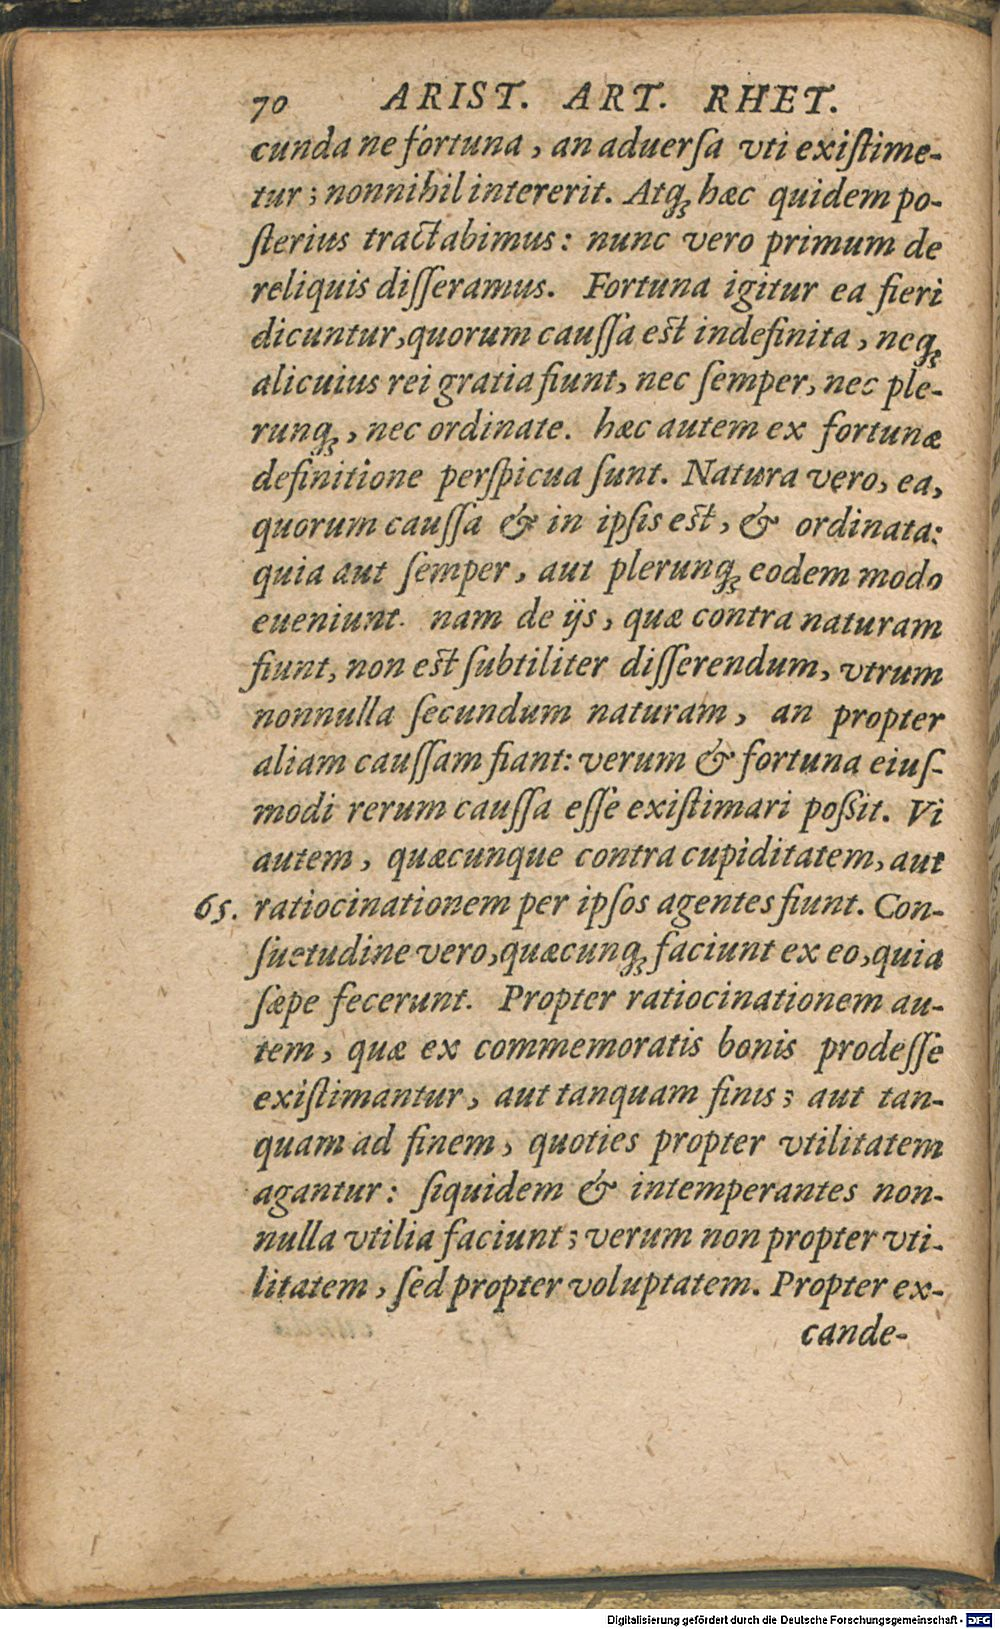 70 ARIST. ART. RHET.
cunda ne fortuna, an aduerſa vti exiſtime-
tur; nonnihil intererit. Atqꝫ hæc quidem po-
ſterius tractabimus: nunc vero primum de
reliquis diſſeramus. Fortuna igitur ea fieri
dicuntur, quorum cauſſa est indefinita, neqꝫ
alicuius rei gratia fiunt, nec ſemper, nec ple-
runqꝫ, nec ordinate. hæc autem ex fortunæ
definitione perſpicua ſunt. Natura vero, ea,
quorum cauſſa & in ipſis est, & ordinata:
quia aut ſemper, aut plerunqꝫ eodem modo
eueniunt. nam de ijs, quæ contra naturam
fiunt, non est ſubtiliter diſſerendum, vtrum
nonnulla ſecundum naturam, an propter
aliam cauſſam fiant: verum & fortuna eiuſ-
modi rerum cauſſa eſſe exiſtimari poßit. Vi
autem, quæcunque contra cupiditatem, aut
65. ratiocinationem per ipſos agentes fiunt. Con-
ſuetudine vero, quæcunqꝫ faciunt ex eo, quia
ſæpe fecerunt. Propter ratiocinationem au-
tem, quæ ex commemoratis bonis prodeſſe
exiſtimantur, aut tanquam finis; aut tan-
quam ad finem, quoties propter vtilitatem
agantur: ſiquidem & intemperantes non-
nulla vtilia faciunt; verum non propter vti-
litatem, ſed propter voluptatem. Propter ex-
cande-
Digitalisierung gefördert durch die Deutsche Forschungsgemeinschaft - DFG